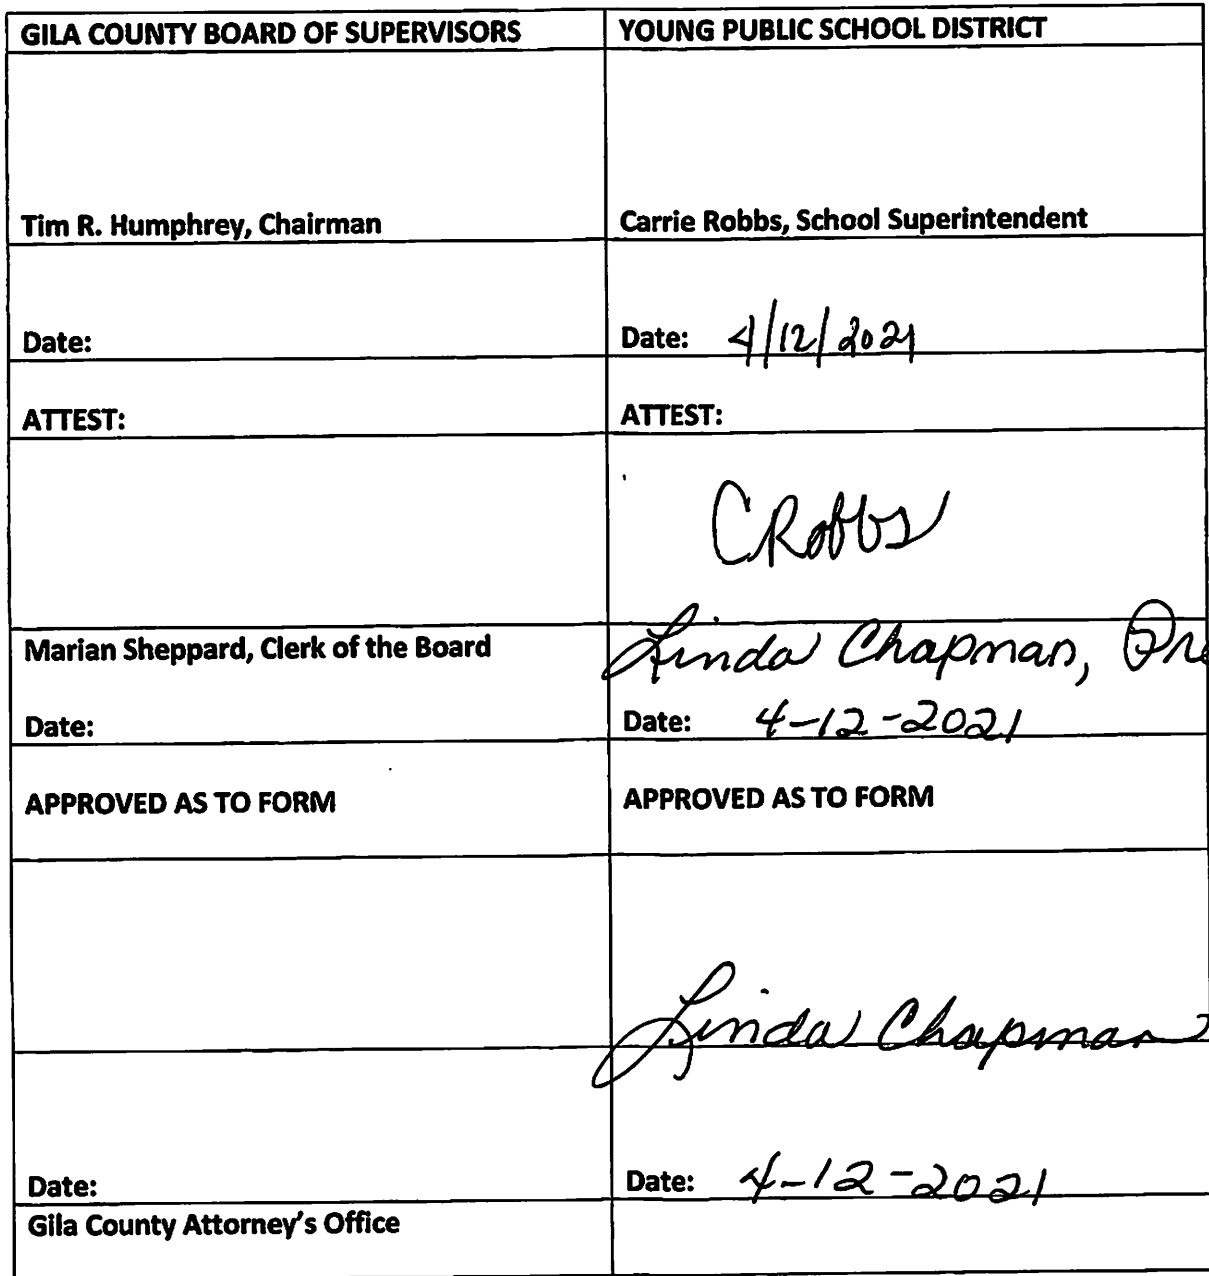 GILA COUNTY BOARD OF SUPERVISORS
YOUNG PUBLIC SCHOOL DISTRICT
Tim R. Humphrey, Chairman
Carrie Robbs, School Superintendent
Date:
Date: 4/12/2021
ATTEST:
ATTEST:
CRobbs
Marian Sheppard, Clerk of the Board
Linda Chapman, Pre
Date:
Date: 4-12-2021
APPROVED AS TO FORM
APPROVED AS TO FORM
Linda Chapman
Date:
Date: 4-12-2021
Gila County Attorney's Office